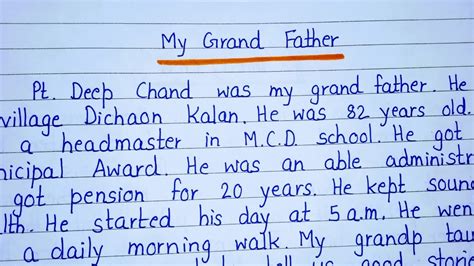 My Grand Father
Pt. Deep Chand was my grand father. He
village Dichaon Kalan. He was 82 years old.
a headmaster in M.C.D. school. He got
nicipal Award. He was an able administr
got pension for 20 years. He kept soun
lth. He started his day at 5 a.m. He wen
a daily morning walk. My grandp tau
us good stori